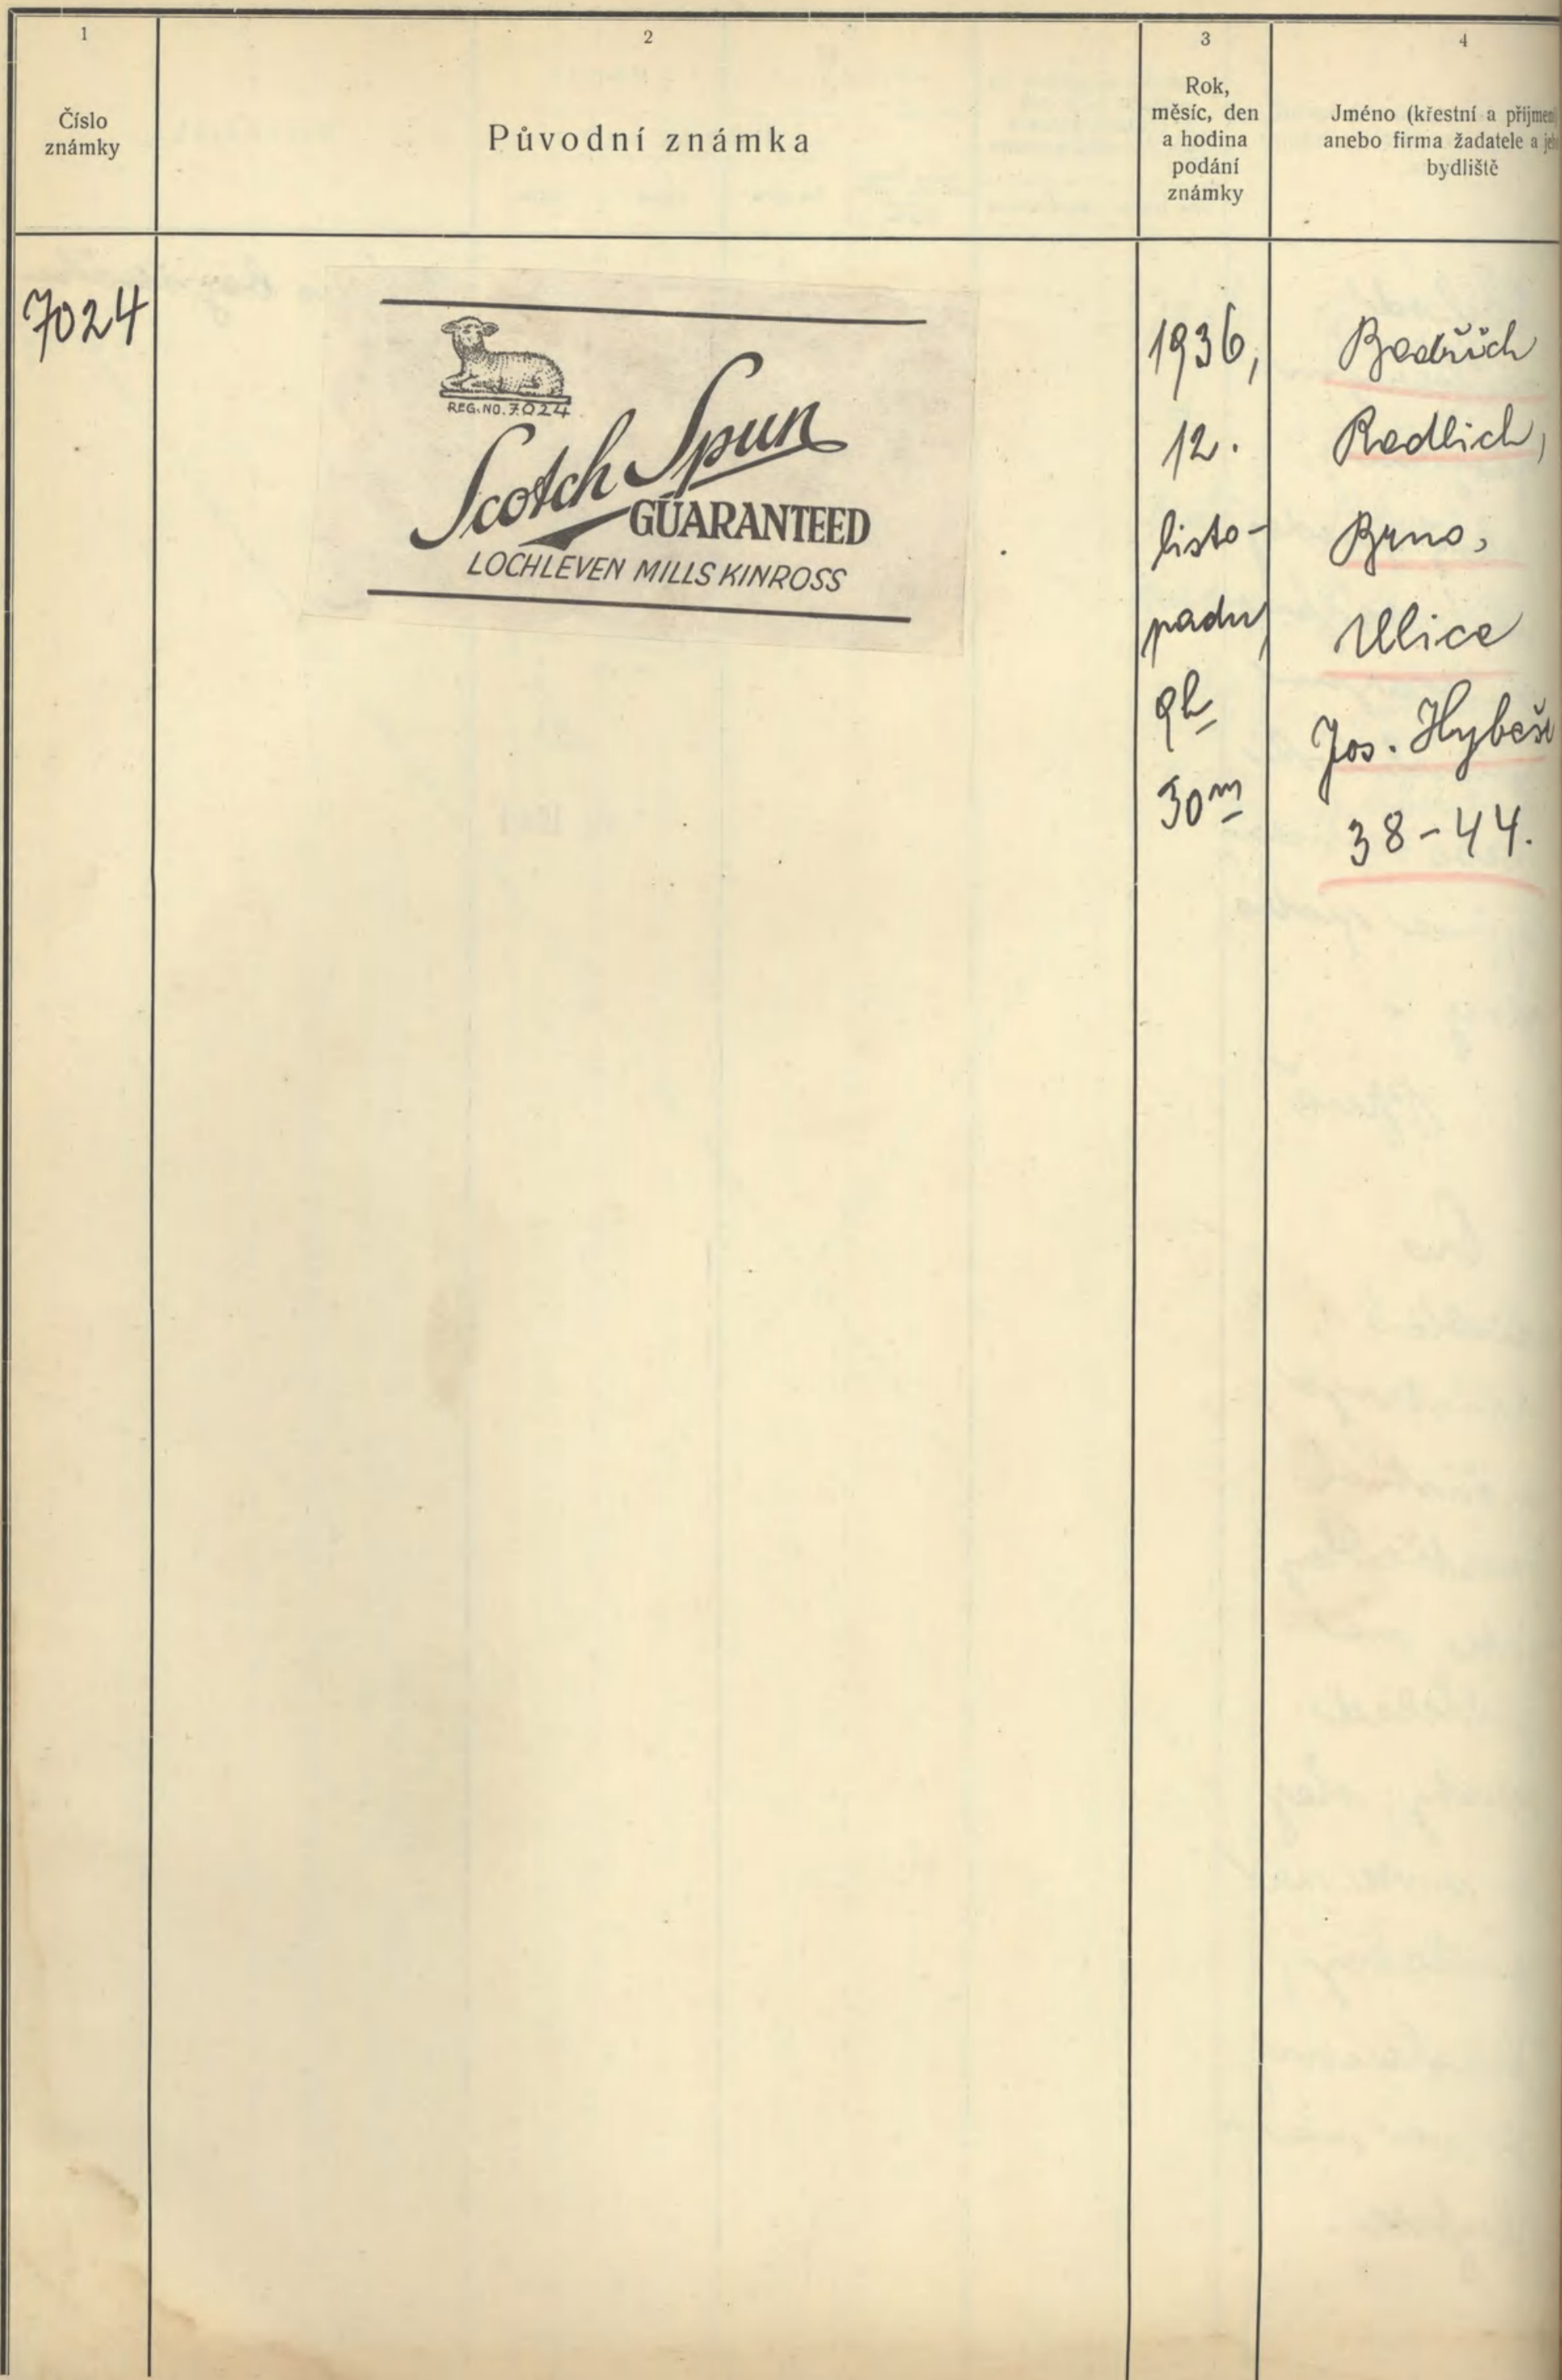 1
Číslo
známky
2
Původní známka
3
Rok,
měsíc, den
a hodina
podání
známky
4
Jméno (křestní a příjmení
anebo firma žadatele a jeho
bydliště
7024
REG. NO. 7024
Scotch Spun
GUARANTEED
LOCHLEVEN MILLS KINROSS
1936,
12.
listo-
padu,
9h
30m
Bedřich
Redlich,
Brno,
Ulice
Jos. Hybeše
38-44.